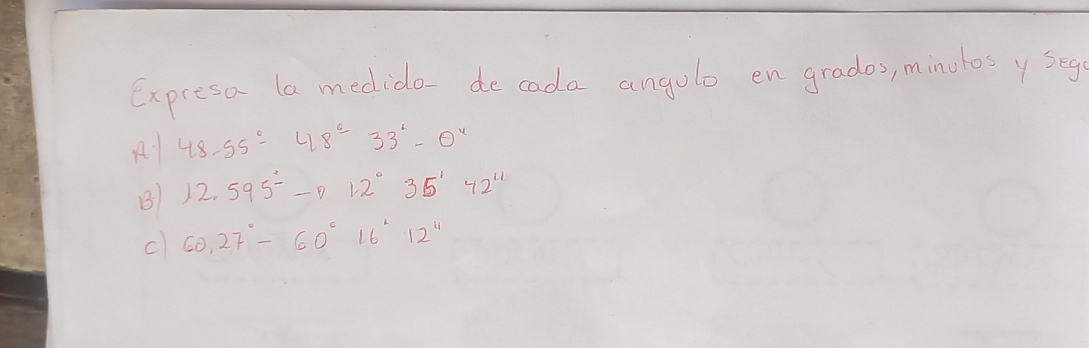 Expresa la medida de cada angulo en grados, minutos y segu
A) 48.55° 48° 33' - 0"
B) 12.595° → 12° 35' 42"
C) 60,27° - 60° 16' 12"